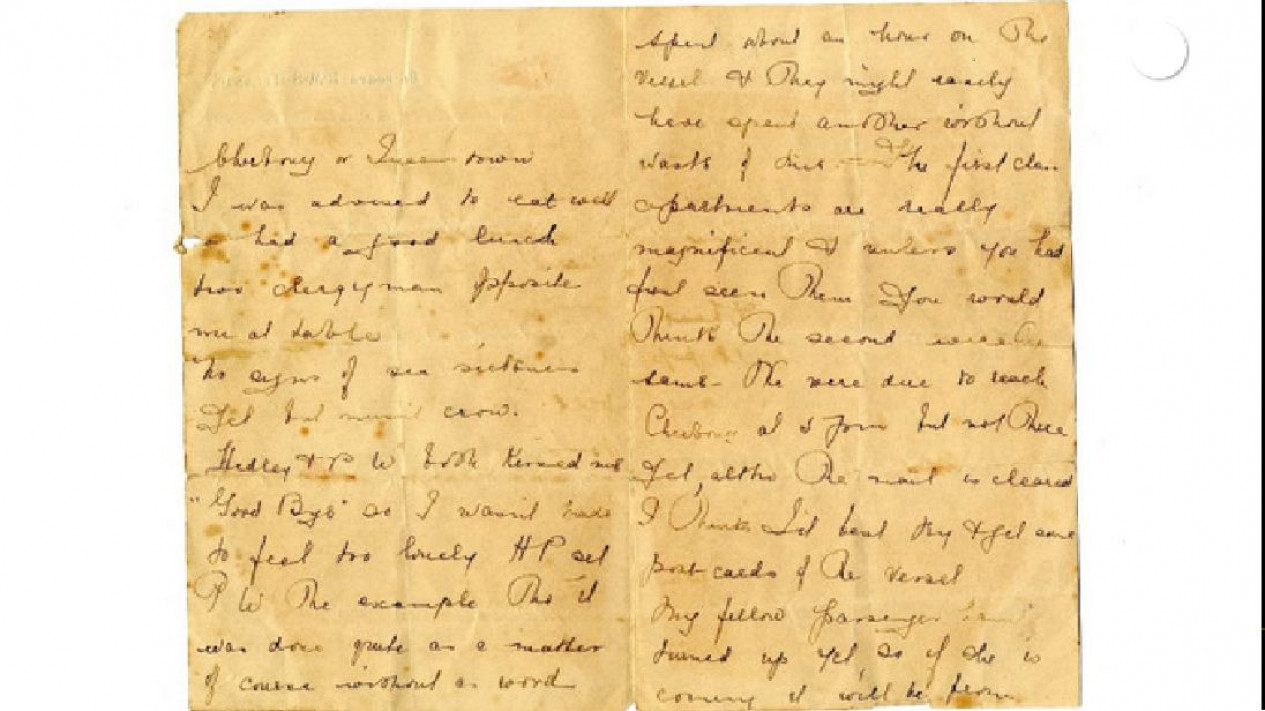 Cherbourg or Queenstown
I was advised to eat well
had a good lunch
two clergyman opposite
me at table
No signs of sea sickness
Yet but crow.
Hedley & P W both kissed me
"Good Bye" so I wasn't made
to feel too lonely HP set
P W The example Tho it
was done quite as a matter
of course without a word
spent about an hour on The
Vessel & They might easily
have spent another without
waste of time The first class
apartments are really
magnificent & unless you had
first seen Them You would
Think The second were
same. The were due to reach
Cherbourg at 5 pm but not There
Yet, altho The mail is cleared
I Think I'd best try & get some
post cards of The Vessel
My fellow passenger
turned up Yet, so if she is
coming it will be from